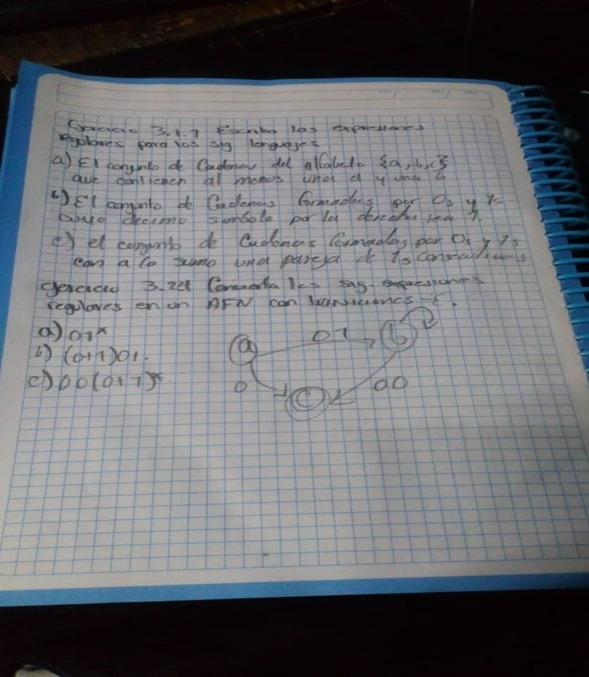 Ejercicio 3.1.1 Escriba las expresiones
regulares para los sig lenguajes
a) El conjunto de Cadenas del alfabeto {a,b,c}
que contienen al menos una a y una b
b) El conjunto de Cadenas formadas por 0s y 1s
cuyo decimo simbolo por la derecha sea 1.
c) el conjunto de Cadenas formadas por 0s y 1s
con a lo sumo una pareja de 1s consecutivos
Ejercicio 3.2.4 Convierta las sig. expresiones
regulares en un AFN con transiciones-ε.
a) 01*
b) (0+1)01.
c) 00(0+1)*
a
01
b
0
00
c